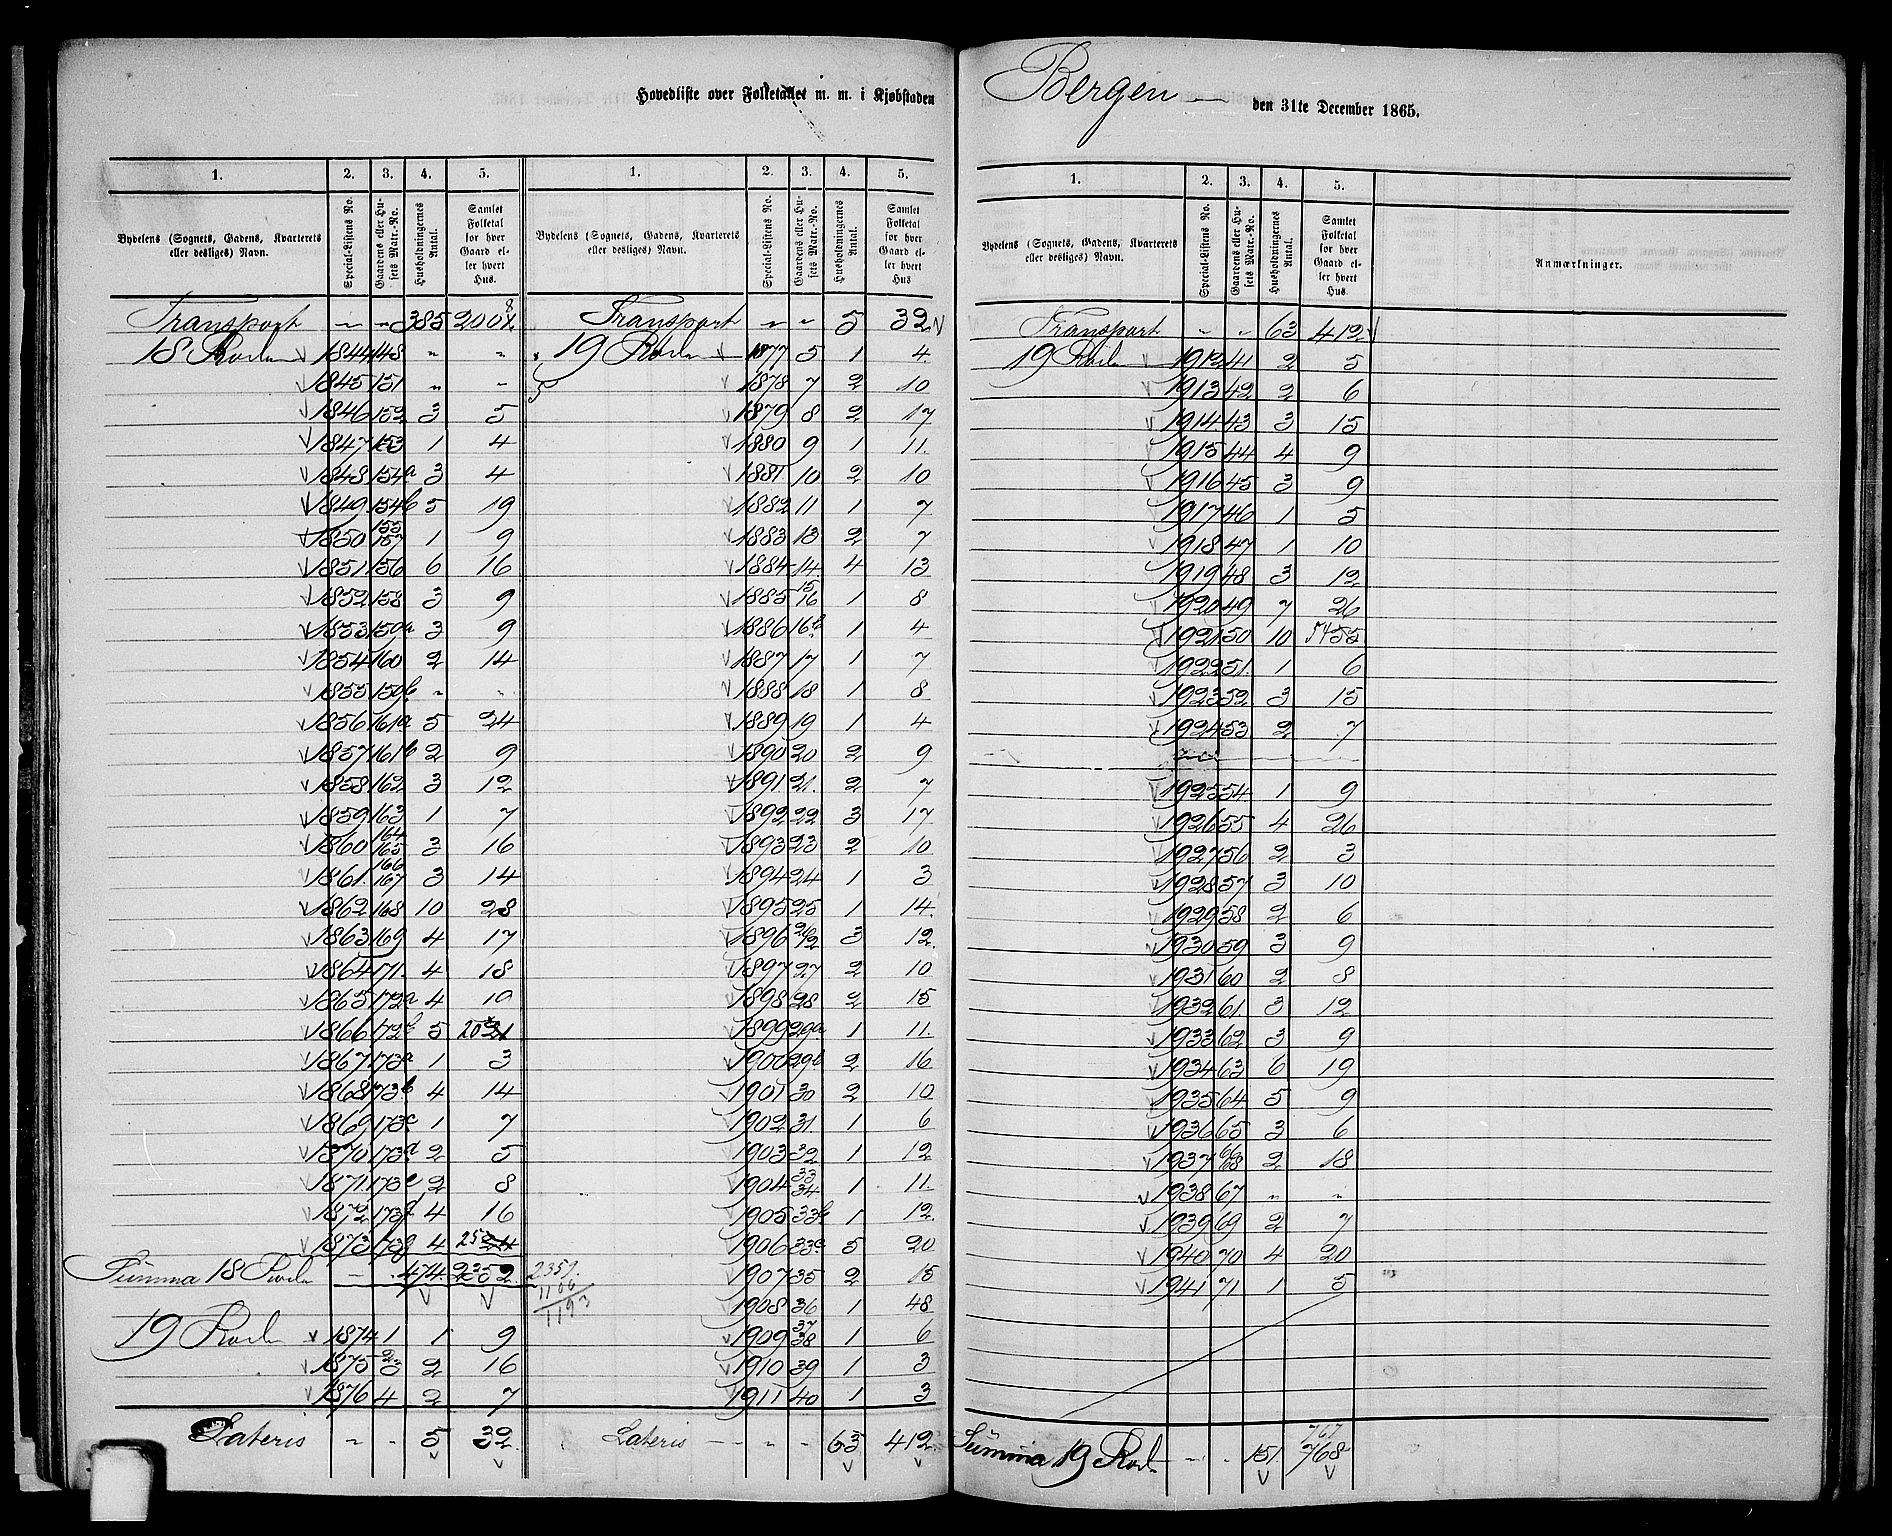 Hovedliste over Folketallet m. m. i Kjøbstaden Bergen den 31te December 1865.
1. 2. 3. 4. 5. 1. 2. 3. 4. 5.
Bydelens (Sognets, Gadens, Kvarterets eller desliges) Navn. Special-Listens No. Gaardens eller Husets Matr.-No. Husholdningernes Antal. Samlet Folketal for hver Gaard eller hvert Hus.
Transport " " 385 200
18 Rode 1844 148 " "
1845 151 " "
1846 152 3 5
1847 153 1 4
1848 154a 3 4
1849 154b 5 19
1850 155 157 1 9
1851 156 6 16
1852 158 3 9
1853 159a 3 9
1854 160 2 14
1855 159b " "
1856 161a 5 24
1857 161b 2 9
1858 162 3 12
1859 163 1 7
1860 164 165 3 16
1861 166 167 3 14
1862 168 10 28
1863 169 4 17
1864 171 4 18
1865 172a 4 10
1866 172b 5 20 21
1867 173a 1 3
1868 173b 4 14
1869 173c 1 7
1870 173d 2 5
1871 173e 2 8
1872 173f 4 16
1873 173g 4 25 24
Summa 18 Rode — 474 2352 2351
1193
19 Rode 1874 1 1 9
1875 2 3 2 16
1876 4 2 7
Lateris " " 5 32
Bydelens (Sognets, Gadens, Kvarterets eller desliges) Navn. Special-Listens No. Gaardens eller Husets Matr.-No. Husholdningernes Antal. Samlet Folketal for hver Gaard eller hvert Hus
Transport " " 5 32
19 Rode 1877 5 1 4
1878 7 2 10
1879 8 2 17
1880 9 1 11
1881 10 2 10
1882 11 1 7
1883 13 2 7
1884 14 4 13
1885 15 16 1 8
1886 16b 1 4
1887 17 1 7
1888 18 1 8
1889 19 1 4
1890 20 2 9
1891 21 2 7
1892 22 3 17
1893 23 2 10
1894 24 1 3
1895 25 1 14
1896 26 12 3 12
1897 27 2 10
1898 28 2 15
1899 29a 1 11
1900 29b 2 16
1901 30 2 10
1902 31 1 6
1903 32 1 12
1904 33 34 1 11
1905 33b 1 12
1906 33c 5 20
1907 35 2 15
1908 36 1 48
1909 37 38 1 6
1910 39 1 3
1911 40 1 3
Lateris " " 63 412
1. 2. 3. 4. 5.
Bydelens (Sognets, Gadens, Kvarterets eller desliges) Navn. Special-Listens No. Gaardens eller Husets Matr.-No. Husholdningernes Antal. Samlet Folketal for hver Gaard eller hvert Hus. Anmærkninger.
Transport " " 63 412
19 Rode 1912 41 2 5
1913 42 2 6
1914 43 3 15
1915 44 4 9
1916 45 3 9
1917 46 1 5
1918 47 1 10
1919 48 3 12
1920 49 7 26
1921 50 10 54 55
1922 51 1 6
1923 52 3 15
1924 53 2 7
1925 54 1 9
1926 55 4 26
1927 56 2 3
1928 57 3 10
1929 58 2 6
1930 59 3 9
1931 60 2 8
1932 61 3 12
1933 62 3 9
1934 63 6 19
1935 64 5 9
1936 65 3 6
1937 66 68 2 18
1938 67 " "
1939 69 2 7
1940 70 4 20
1941 71 1 5
767
Summa 19 Rode " " 151 768